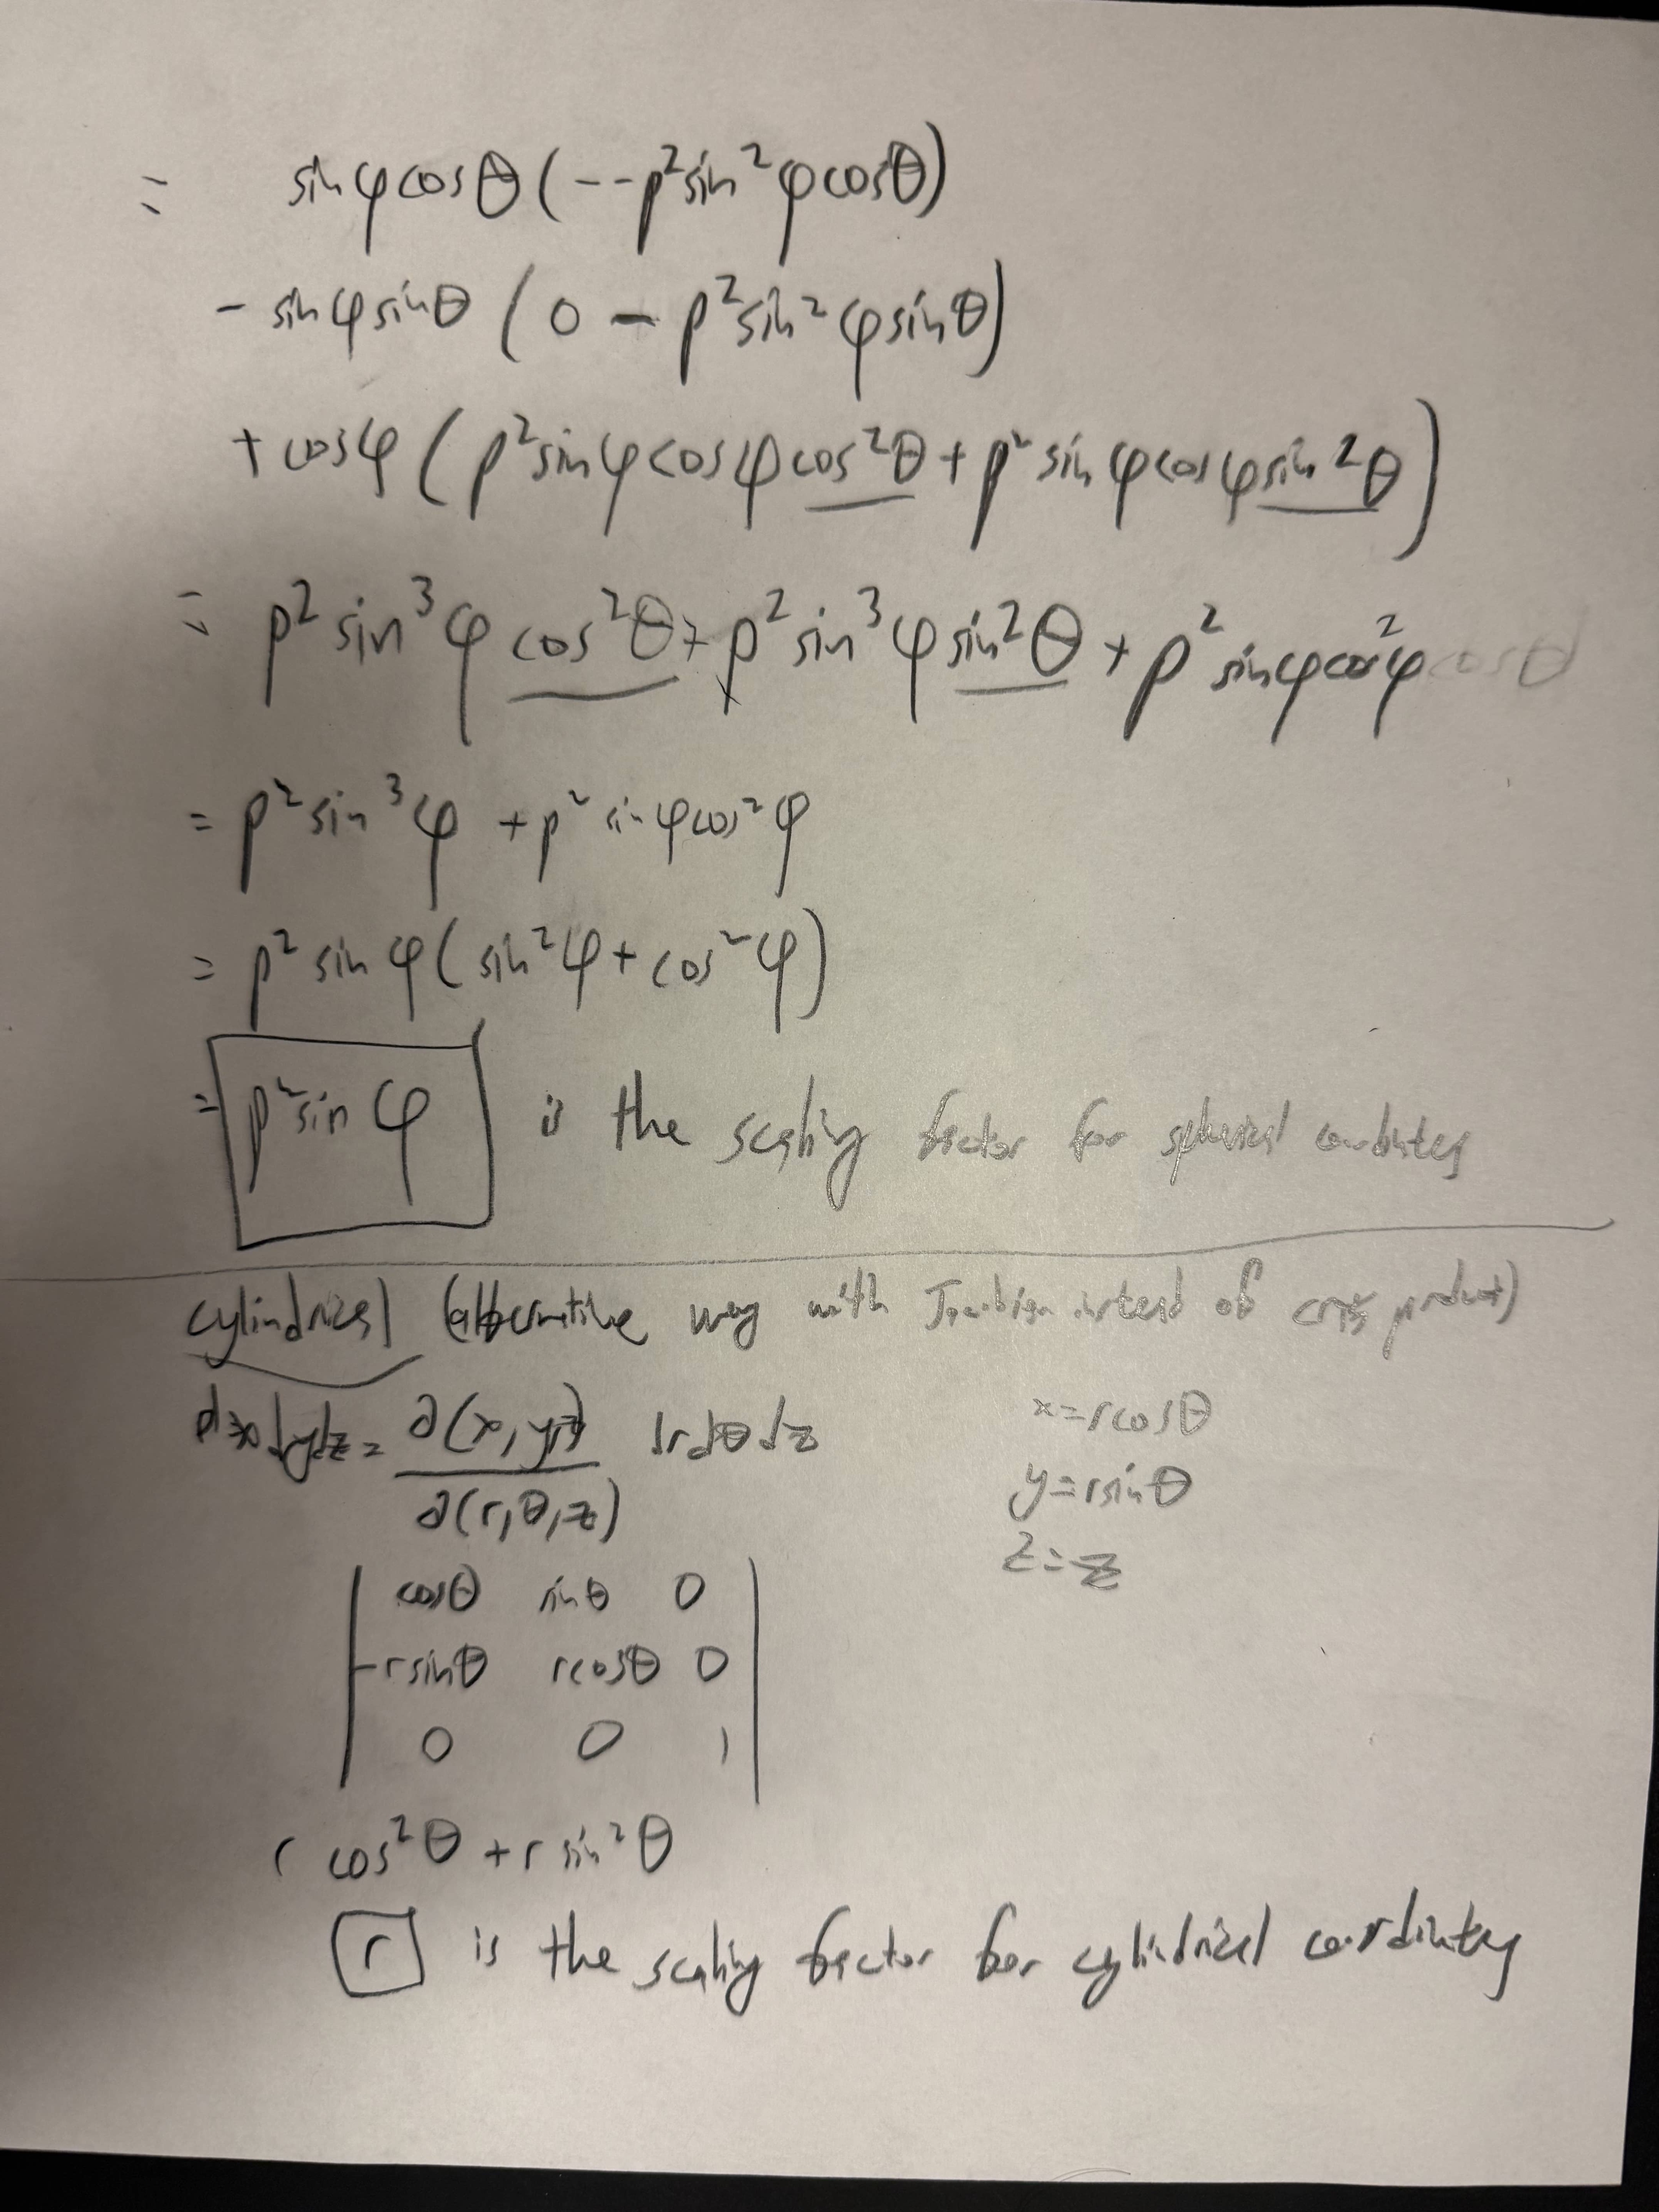 = sinφcosθ(--ρ²sin²φcosθ)
- sinφsinθ (0 - ρ²sin²φsinθ)
+ cosφ(ρ²sinφcosφcos²θ + ρ²sinφcosφsin²θ)
= ρ²sin³φcos²θ + ρ²sin³φsin²θ + ρ²sinφcos²φcosθ
= ρ²sin³φ + ρ²sinφcos²φ
= ρ²sinφ(sin²φ + cos²φ)
= ρ²sinφ is the scaling factor for spherical coordinates
cylindrical (alternative way with Jacobian instead of cross product)
dxdydz = ∂(x,y,z)/∂(r,θ,z) drdθdz
x=rcosθ
y=rsinθ
z=z
| cosθ sinθ 0 |
| -rsinθ rcosθ 0 |
| 0 0 1 |
r cos²θ + r sin²θ
r is the scaling factor for cylindrical coordinates